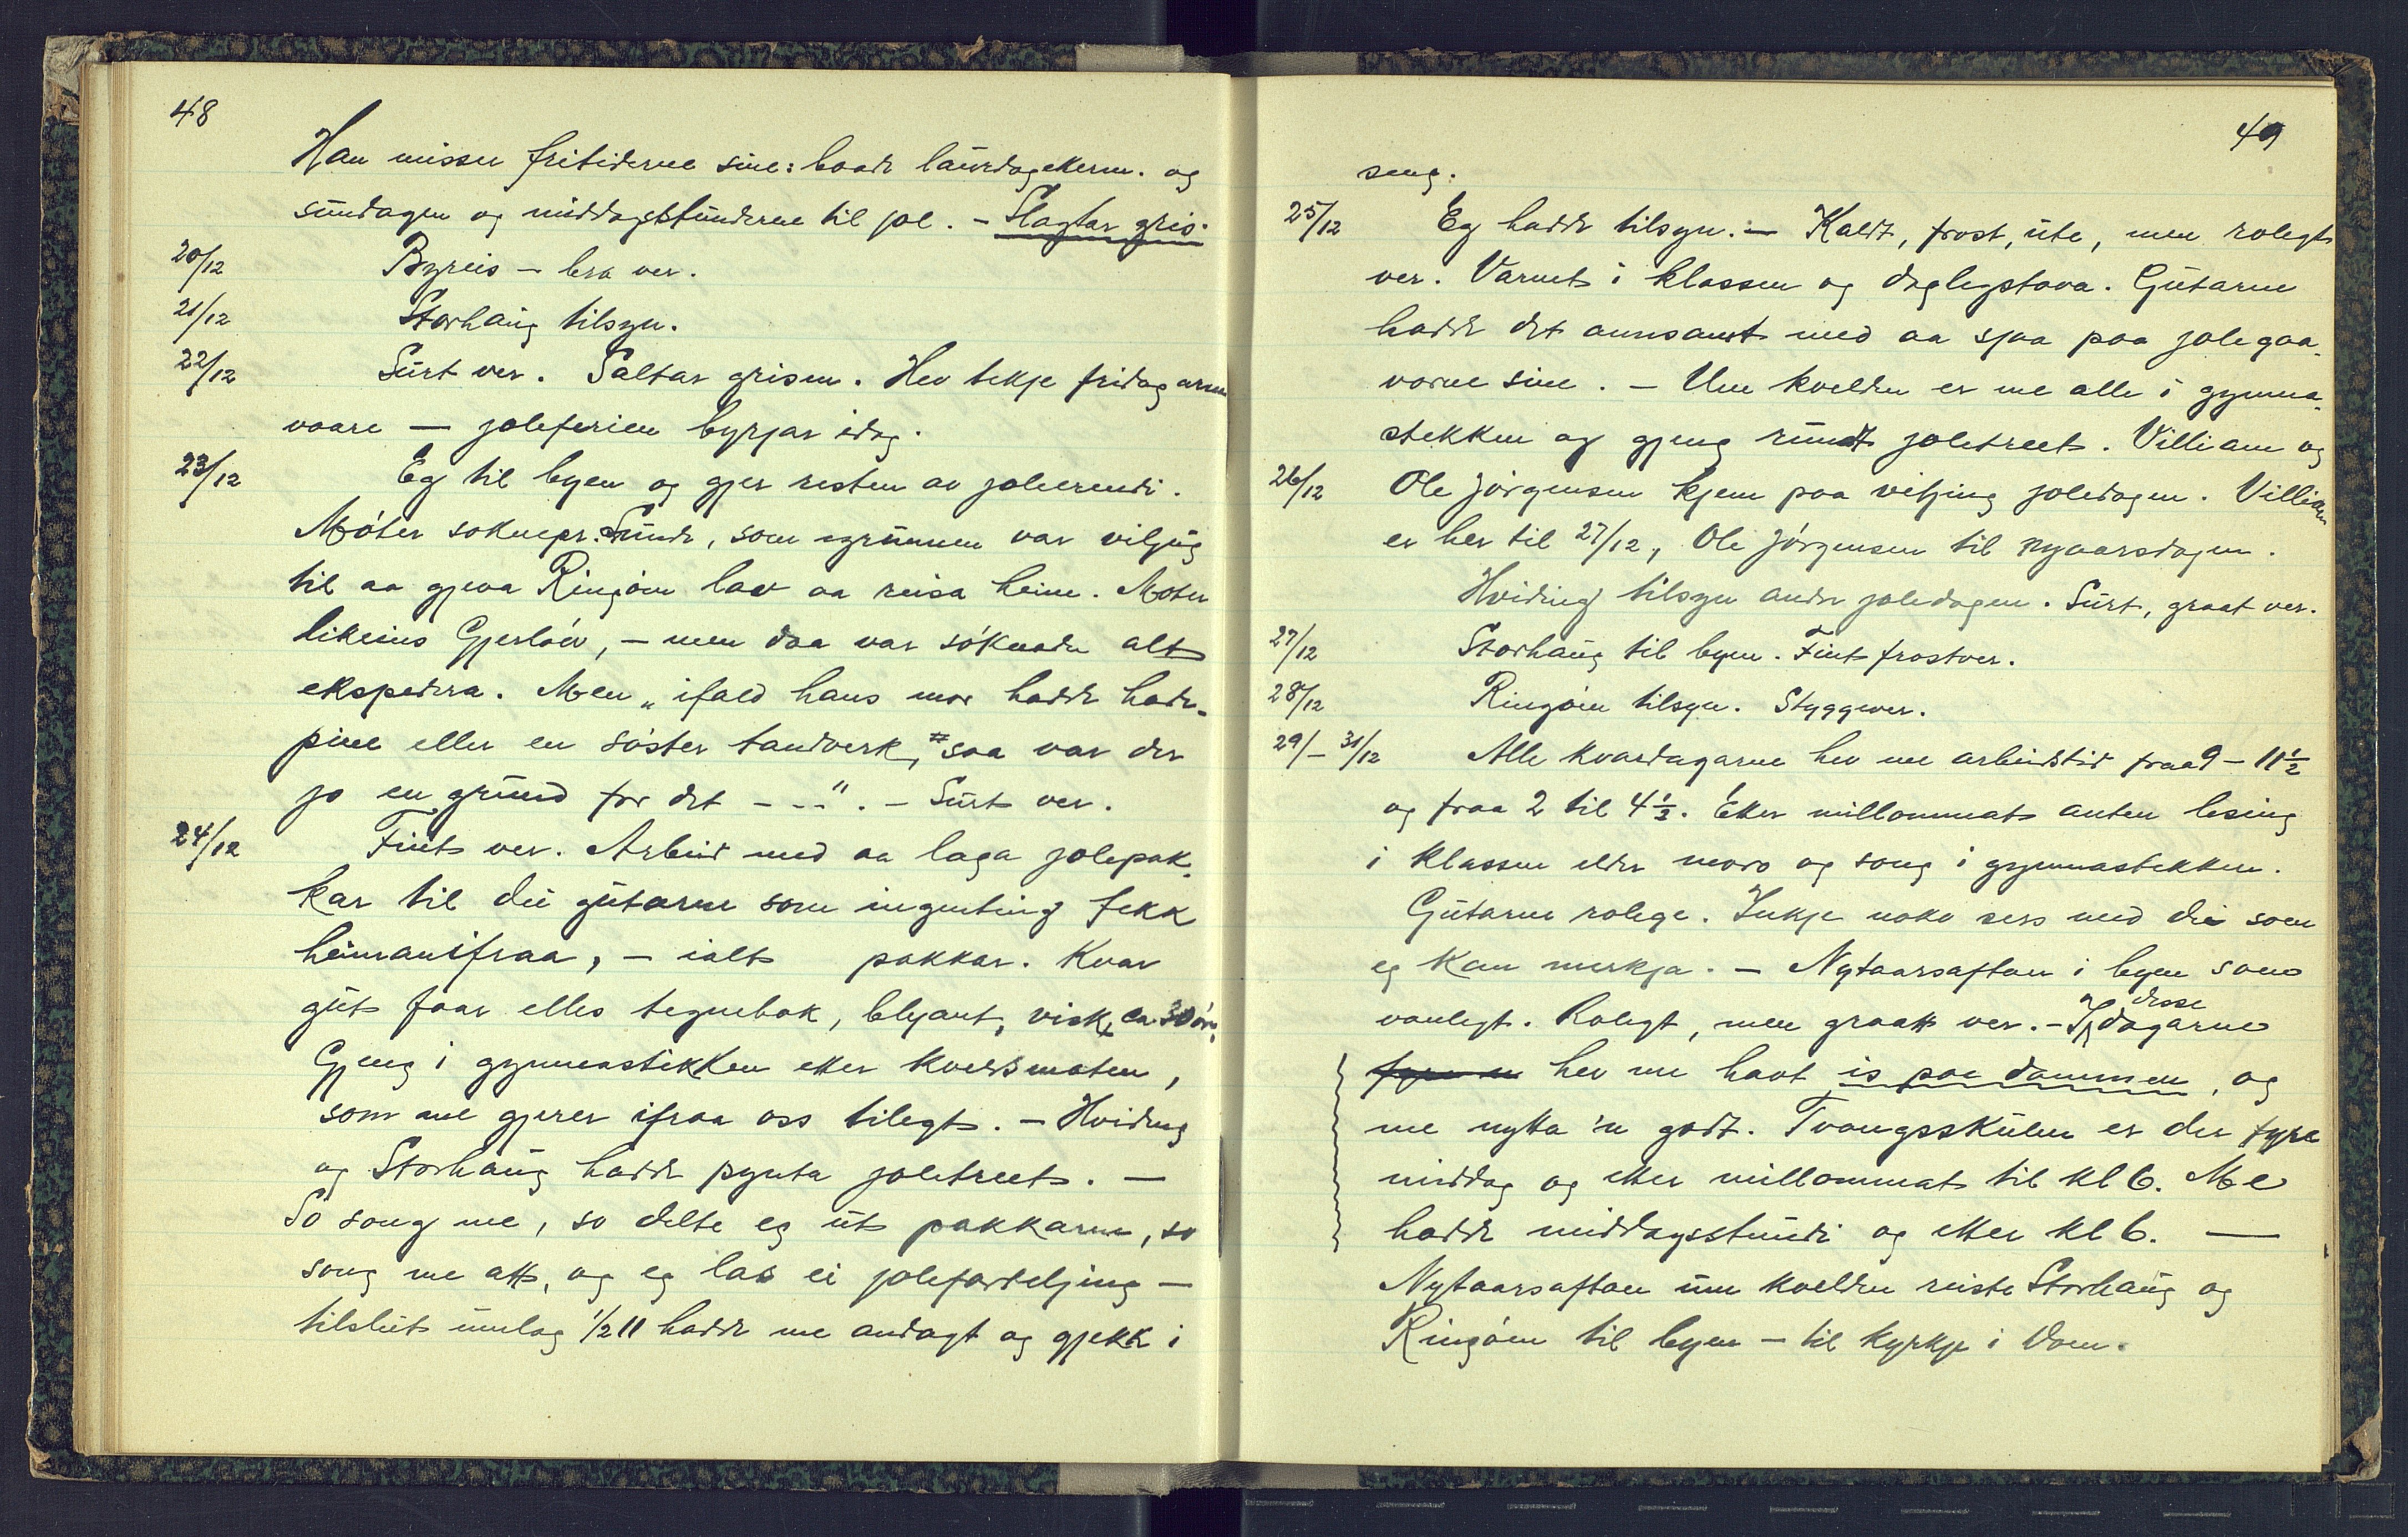 48
Han misser fritiderne sine: baade laurdagskvem. og
sundagen og middagsstunderne til jol. - Slagtar gris.
20/12 Byreis - bra ver.
21/12 Storhaug tilsyn.
22/12 Surt ver. Saltar grisen. Hev tekje fridagarne
vaare — joleferien byrjar idag.
23/12 Eg til byen og gjer resten av joleerendi.
Møter soknepr. Sunde, som igrunnen var viljug
til aa gjeva Ringøen lov aa reisa heim. Møter
likeins Gjerløv, - men daa var søknaden alt
ekspedera. Men „ifald hans mor hadde hode-
pine eller en søster tandverk, saa var der
jo en grund for det - - -". - Surt ver.
24/12 Fint ver. Arbeid med aa laga jolepak-
kar til dei gutarne som ingenting fekk
heimanifraa, - ialt pakkar. Kvar
gut faar elles tegnebok, blyant, visk, ca 30 ør.
Gjeng i gymnastikken etter kveldsmaten,
som me gjerer ifraa oss tilegt. - Hviding
og Storhaug hadde pynta joletreet. —
So song me, so delte eg ut pakkarne, so
song me att, og eg las ei joleforteljing —
tilslut umlag 1/2 11 hadde me andagt og gjekk i
49
seng.
25/12 Eg hadde tilsyn. — Kaldt, frost, ute, men rolegt
ver. Varmt i klassen og daglegstova. Gutarne
hadde det annsamt med aa sjaa paa jolegaa-
vorne sine. - Um kvelden er me alle i gymna-
stikken og gjeng rundt joletreet. Villiam og
26/12 Ole Jørgensen kjem paa vitjing joledagen. Villiam
er her til 27/12, Ole Jørgensen til nyaarsdagen.
Hviding tilsyn andre joledagen. Surt, graat ver.
27/12 Storhaug til byen. Fint frostver.
28/12 Ringøen tilsyn. Styggver.
29/ - 31/12 Alle kvardagarne hev me arbeidstid fraa 9 - 11 1/2
og fraa 2 til 4 1/2. Etter millommat anten lesing
i klassen elder moro og song i gymnastikken.
Gutarne rolege. Inkje noko sers med dei som
eg kan merkja. - Nytaarsaftan i byen som
vanlegt. Rolegt, men graatt ver. - I disse dagarne
hev me havt is paa dammen, og
me nytta 'n godt. Tvangsskulen er der fyre
middag og etter millommat til kl 6. Me
hadde middagsstundi og etter kl 6. —
Nytaarsaftan um kvelden reiste Storhaug og
Ringøen til byen - til kyrkje i Dom.